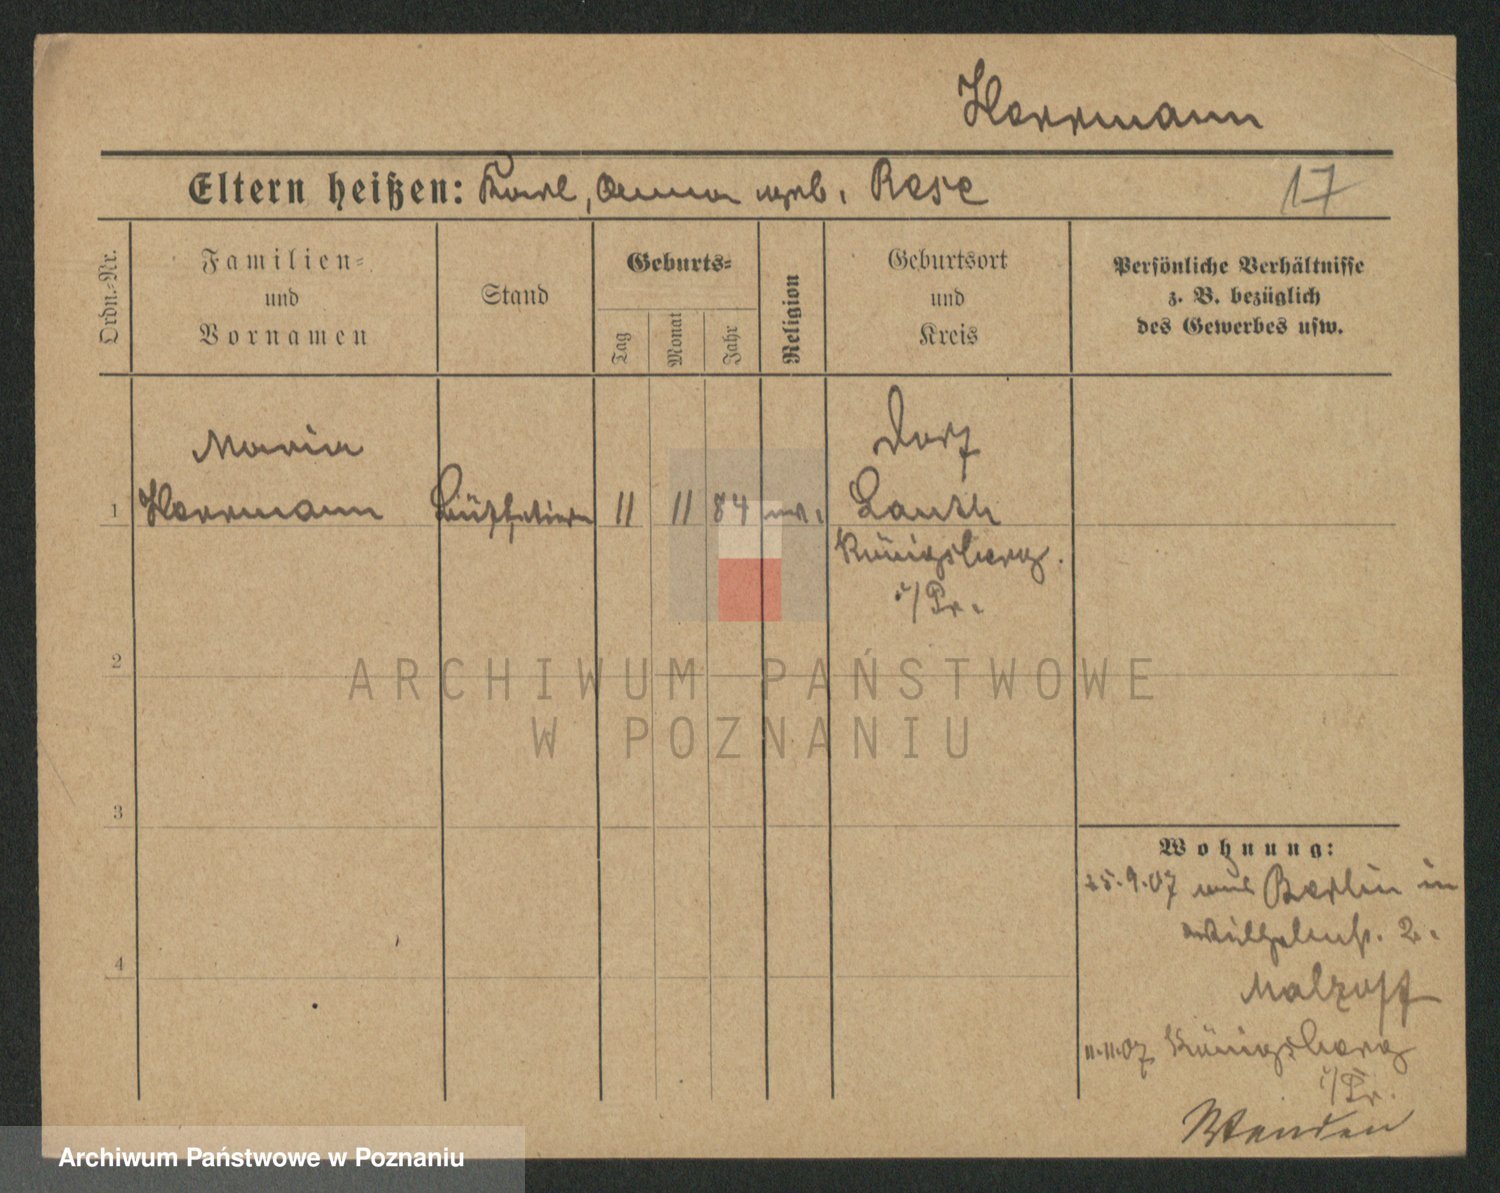 Herrmann
Eltern heißen: Karl, Anna geb. Rose
17
Ordn.=Nr.
Familien=
und
Vornamen
Stand
Geburts=
Tag
Monat
Jahr
Religion
Geburtsort
und
Kreis
Persönliche Verhältnisse
z. B. bezüglich
des Gewerbes usw.
Maria
Dorf
1 Herrmann Büffetiere 11 11 84 ev. Lauth
Königsberg.
i/Pr.
2
3
4
Wohnung:
25.9.07 aus Berlin in
Wilhelmstr. 2.
11.11.07 Königsberg
i/Pr.
ARCHIWUM PAŃSTWOWE
W POZNANIU
Archiwum Państwowe w Poznaniu